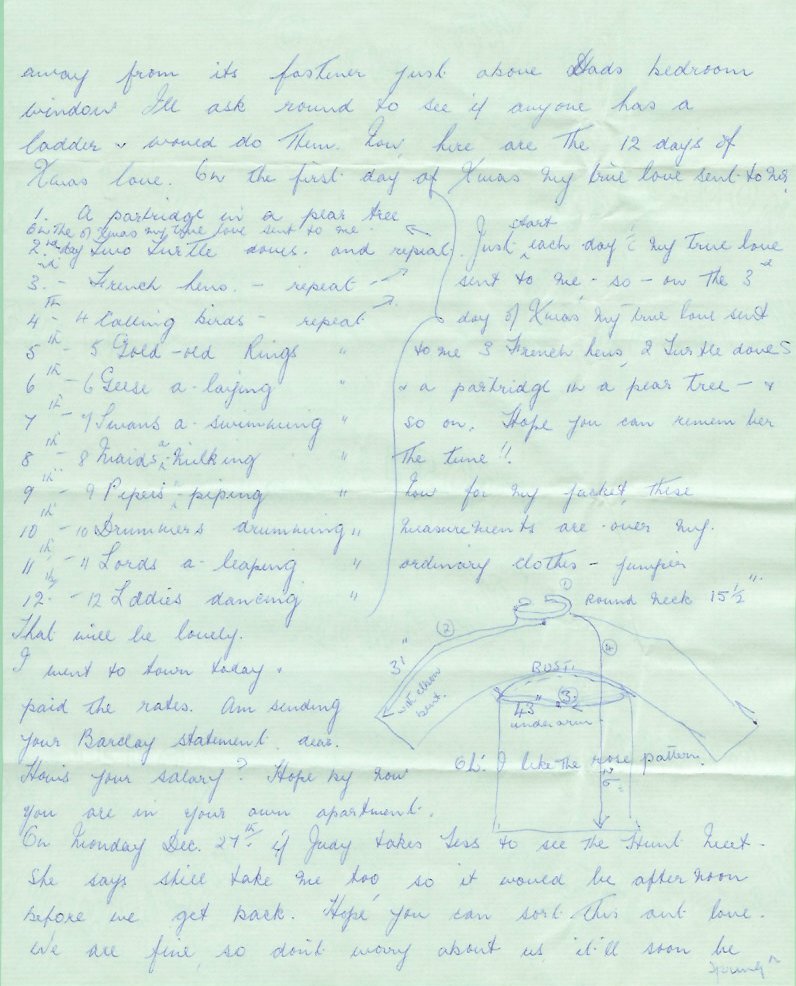 away from its fastener just above Dads bedroom
window I'll ask round to see if anyone has a
ladder & would do them. Now, here are the 12 days of
Xmas love. On the first day of Xmas my true love sent to me
1. A partridge in a pear tree
On the of Xmas my true love sent to me
2nd day Two Turtle doves. and repeat.
3. - French hens. - repeat -
4th - 4 Calling birds - repeat
5th - 5 Gold-old Rings "
6th - 6 Geese a-laying "
7th - 7 Swans a-swimming "
8th - 8 Maids a-Milking "
9th - 9 Pipers piping "
10th - 10 Drummers drumming "
11th - 11 Lords a-leaping "
12th - 12 Laddies dancing "
That will be lovely.
I went to town today &
paid the rates. Am sending
your Barclay statement, dear.
How's your salary? Hope by now
you are in your own apartment.
Just start each day my true love
sent to me - so - on the 3rd
day of Xmas my true love sent
to me 3 French hens, 2 Turtle doves
& a partridge in a pear tree - &
so on. Hope you can remember
the tune!!
Now for my jacket, these
measurements are over my
ordinary clothes - jumper
① Round Neck 15½".
② 31"
with elbow bent.
④
BUST.
③
43"
underarm
Oh! I like the rose pattern.
On Monday Dec. 27th if Judy takes Tess to see the Hunt Meet -
she says she'll take me too, so it would be afternoon
before we get back. Hope you can sort this out love.
We are fine, so don't worry about us, it'll soon be
spring